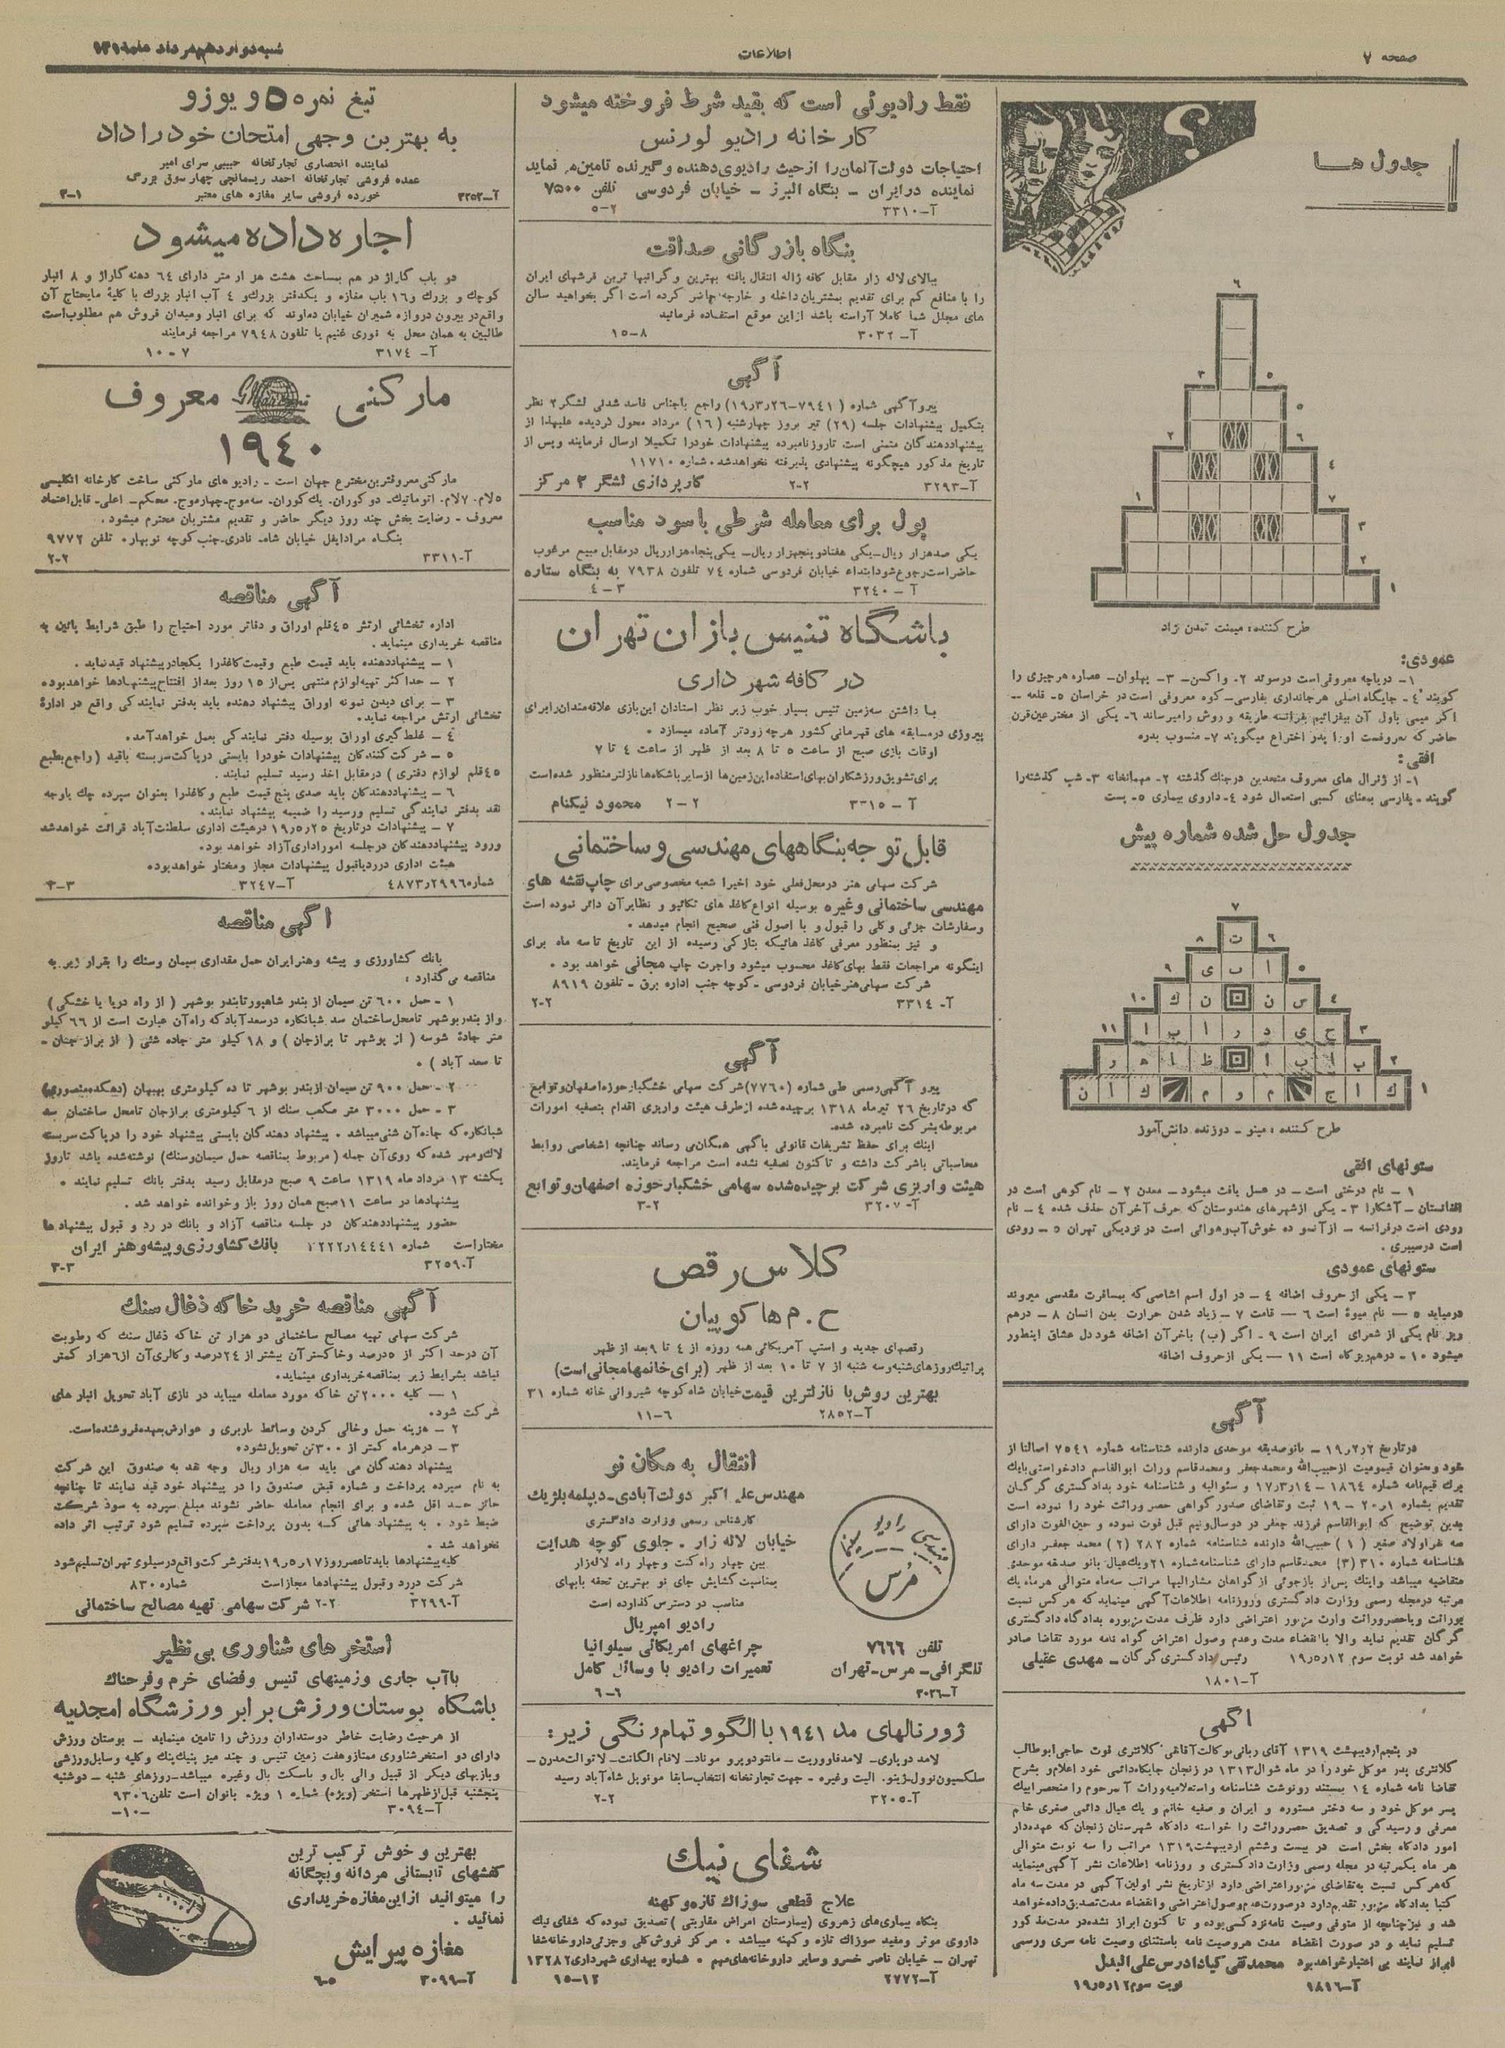 صفحه ۷
اطلاعات
شنبه دوازدهم مرداد ماه ۱۳۱۹
جدول ها
؟
طرح کننده: میمنت تمدن نژاد
عمودی:
۱- دریاچه معروفی است در سوئد ۲- واکسن- ۳- پهلوان- عصاره هر چیزی را
گویند ۴- جایگاه اصلی هر جانداری بفارسی- کوه معروفی است در خراسان ۵- قلعه -
اگر میمی باول آن بیفزائیم بفرانسه طریقه و روش را میرساند ۶- یکی از مخترعین قرن
حاضر که معروفست او را پدر اختراع میگویند ۷- منسوب بدره
افقی:
۱- از ژنرال های معروف متحدین در جنگ گذشته ۲- مهمانخانه ۳- شب گذشته را
گویند- بفارسی بمعنای کسی استعمال شود ۴- داروی بیماری ۵- پست
جدول حل شده شماره پیش
طرح کننده: مینو - دوزنده دانش آموز
ستونهای افقی
۱- نام درختی است- در عسل یافت میشود- معدن ۲- نام کوهی است در
افغانستان- آشکارا ۳- یکی از شهرهای هندوستان که حرف آخر آن حذف شده ۴- نام
رودی است در فرانسه - از آنسو ده خوش آب و هوائی است در نزدیکی تهران ۵- رودی
است در سیبری.
ستونهای عمودی
۳- یکی از حروف اضافه ۴- در اول اسم اشخاصی که بمسافرت مقدسی میروند
درمیاید ۵- نام میوهٔ است ۶- قامت ۷- زیاد شدن حرارت بدن انسان ۸- درهم
ویر نام یکی از شعرای ایران است ۹- اگر (ب) باخر آن اضافه شود دل عشاق اینطور
میشود ۱۰- درهم ریز گاه است ۱۱- یکی از حروف اضافه
آگهی
در تاریخ ۱۹٫۲٫۲ - بانو صدیقه موحدی دارنده شناسنامه شماره ۷۵۴۱ اصالتا از
خود و بعنوان قیمومیت از حبیب الله و محمد جعفر و محمد قاسم وراث ابوالقاسم دادخواستی بایک
برگ قیم نامه شماره ۱۸۶۴-۱۷٫۳٫۱۴ و سئوالیه و شناسنامه خود بدادگستری گرگان
تقدیم بشماره ۲۰٫۱-۱۹ ثبت و تقاضای صدور گواهی حصر وراثت خود را نموده است
بدین توضیح که ابوالقاسم فرزند جعفر در دو سال و نیم قبل فوت نموده و حین الفوت دارای
سه نفر اولاد صغیر (۱) حبیب الله دارنده شناسنامه شماره ۲۸۲ (۲) محمد جعفر دارای
شناسنامه شماره ۳۱۰ (۳) محمد قاسم دارای شناسنامه شماره ۲۱ و یک عیال بانو صدقه موحدی
متقاضیه میباشد و اینک پس از بازجوئی از گواهان مشارالیها مراتب سه ماه متوالی هر ماه یک
مرتبه در مجله رسمی وزارت دادگستری و روزنامه اطلاعات آگهی مینماید که هر کس نسبت
بوراثت و یا حصر وراثت وارث مزبور اعتراضی دارد ظرف مدت مزبوره بدادگاه دادگستری
گرگان تقدیم نماید والا با انقضاء مدت و عدم وصول اعتراض گواه نامه مورد تقاضا صادر
خواهد شد نوبت سوم ۱۹٫۵٫۱۲ رئیس دادگستری گرگان - مهدی عقیلی
آ-۱۸۰۱
آگهی
در پنجم اردیبهشت ۱۳۱۹ آقای ربانی بوکالت آقاتقی کلانتری فوت حاجی ابوطالب
کلانتری پدر موکل خود را در ماه شوال ۱۳۱۳ در زنجان جایگاه دائمی خود اعلام و بشرح
تقاضا نامه شماره ۱۴ بمستند رونوشت شناسنامه و استعلامیه وراث آنمرحوم را منحصر ابیک
پسر موکل خود و سه دختر مستوره و ایران و صفیه خانم و یک عیال دائمی صغری خانم
معرفی و رسیدگی و تصدیق حصر وراثت را خواسته دادگاه شهرستان زنجان که عهده دار
امور دادگاه بخش است در بیست و ششم اردیبهشت ۱۳۱۹ مراتب را سه نوبت متوالی
هر ماه یکمرتبه در مجله رسمی وزارت دادگستری و روزنامه اطلاعات نشر آگهی مینماید
که هر کس نسبت به تقاضای مزبور اعتراضی دارد از تاریخ نشر اولین آگهی در مدت سه ماه
کتبا بدادگاه مزبور تقدیم دارد در صورت عدم وصول اعتراضی و انقضاء مدت تصدیق داده خواهد
شد و نیز چنانچه از متوفی وصیت نامه نزد کسی بوده و تا کنون ابراز نشده در مدت مذکور
تسلیم نماید و در صورت انقضاء مدت هر وصیت نامه باستثنای وصیت نامه سری و رسمی
ابراز نمایند بی اعتبار خواهد بود محمد تقی کیا دادرس علی البدل
آ-۱۸۱۶ نوبت سوم ۱۹٫۵٫۱۲
فقط رادیوئی است که بقید شرط فروخته میشود
کارخانه رادیو لورنس
احتیاجات دولت آلمان را از حیث رادیوی دهنده و گیرنده تامین می نماید
نماینده در ایران - بنگاه البرز - خیابان فردوسی تلفن ۷۵۰۰
آ-۳۳۱۰ ۲-۵
بنگاه بازرگانی صداقت
ببالای لاله زار مقابل کافه ژاله انتقال یافته بهترین و گرانبها ترین فرشهای ایران
را با منافع کم برای تقدیم بمشتریان داخله و خارجه حاضر کرده است اگر بخواهید سالن
های مجلل شما کاملا آراسته باشد از این موقع استفاده فرمائید
آ-۳۰۳۲ ۸-۱۵
آگهی
پیرو آگهی شماره (۷۹۴۱-۱۹٫۳٫۲۶) راجع باجناس فاسد شدنی لشگر ۲ نظر
بتکمیل پیشنهادات جلسه (۲۹) تیر بروز چهارشنبه (۱۶) مرداد محول گردیده علیهذا از
پیشنهاد دهندگان متمنی است تا روز نامبرده پیشنهادات خود را تکمیلا ارسال فرمایند و پس از
تاریخ مذکور هیچگونه پیشنهادی پذیرفته نخواهد شد. شماره ۱۱۷۱۰
آ-۳۲۹۳ ۲-۲ کارپردازی لشگر ۲ مرکز
پول برای معامله شرطی با سود مناسب
یکی صد هزار ریال- یکی هفتاد و پنجهزار ریال- یکی پنجاه هزار ریال در مقابل مبیع مرغوب
حاضر است رجوع شود ابتداء خیابان فردوسی شماره ۷۴ تلفون ۷۹۳۸ به بنگاه ستاره
آ-۳۲۴۰ ۳-۴
باشگاه تنیس بازان تهران
در کافه شهر داری
با داشتن سه زمین تنیس بسیار خوب زیر نظر استادان این بازی علاقه مندان را برای
پیروزی در مسابقه های قهرمانی کشور هر چه زودتر آماده میسازد.
اوقات بازی صبح از ساعت ۵ تا ۸ بعد از ظهر از ساعت ۴ تا ۷
برای تشویق ورزشکاران بهای استفاده این زمین ها از سایر باشگاه ها نازلتر منظور شده است
آ-۳۳۱۵ ۲-۲ محمود نیکنام
قابل توجه بنگاههای مهندسی و ساختمانی
شرکت سهامی هنر در محل فعلی خود اخیرا شعبه مخصوصی برای چاپ نقشه های
مهندسی ساختمانی و غیره بوسیله انواع کاغذ های تکائیو و نظایر آن دائر نموده است
و سفارشات جزئی و کلی را قبول و با اصول فنی صحیح انجام میدهد.
و نیز بمنظور معرفی کاغذ هائیکه بتازگی رسیده از این تاریخ تا سه ماه برای
اینگونه مراجعات فقط بهای کاغذ محسوب میشود و اجرت چاپ مجانی خواهد بود.
شرکت سهامی هنر خیابان فردوسی- کوچه جنب اداره برق- تلفون ۸۹۱۹
آ-۳۳۱۴ ۲-۲
آگهی
پیرو آگهی رسمی طی شماره (۷۷۶۰) شرکت سهامی خشکبار حوزه اصفهان و توابع
که در تاریخ ۲۶ تیر ماه ۱۳۱۸ برچیده شده از طرف هیئت واریزی اقدام بتصفیه امورات
مربوطه بشرکت نامبرده شده.
اینک برای حفظ تشریفات قانونی باگهی همگان می رساند چنانچه اشخاصی روابط
محاسباتی با شرکت داشته و تا کنون تصفیه نشده است مراجعه فرمایند.
هیئت واریزی شرکت برچیده شده سهامی خشکبار حوزه اصفهان و توابع
آ-۳۲۰۷ ۲-۳
کلاس رقص
ح. م هاکوپیان
رقصهای جدید و استپ آمریکائی همه روزه از ۴ تا ۹ بعد از ظهر
پراتیک روزهای شنبه و سه شنبه از ۷ تا ۱۰ بعد از ظهر (برای خانمها مجانی است)
بهترین روش با نازلترین قیمت خیابان شاه کوچه شیروانی خانه شماره ۳۱
آ-۲۸۵۲ ۶-۱۱
انتقال به مکان نو
مهندس علی اکبر دولت آبادی- دیپلمه بلژیک
کارشناس رسمی وزارت دادگستری
خیابان لاله زار. جلوی کوچه هدایت
بین چهار راه کنت و چهار راه لاله زار
بمناسبت گشایش جای نو بهترین تحفه بابهای
مناسب در دسترس گذارده است
رادیو امپریال
چراغهای امریکائی سیلوانیا
تعمیرات رادیو با وسائل کامل
مهندسی رادیو سینما
مرس
تلفن ۷۶۶۶
تلگرافی- مرس- تهران
آ-۳۰۲۶ ۶-۶
ژورنالهای مد ۱۹۴۱ با الگو و تمام رنگی زیر:
لامد دوپاری- لامد فاووریت - مانتو دوپرو مونلد- لافام الگانت- لاتوالت مدرن -
سلکسیون نوول- ژینو- الیت و غیره- جهت تجارتخانه انتخاب سابقا مونوبل شاه آباد رسید
آ-۳۲۰۵ ۲-۲
شفای نیک
علاج قطعی سوزاک تازه و کهنه
بنگاه بیماری های زهروی (بیمارستان امراض مقاربتی) تصدیق نموده که شفای نیک
داروی موثر و مفید سوزاک تازه و کهنه میباشد. مرکز فروش کلی و جزئی داروخانه شفا
تهران- خیابان ناصر خسرو و سایر داروخانه های مهم. شماره بهداری شهرداری ۱۳۲۸۲
آ-۲۷۷۲ ۱۲-۱۵
تیغ نمره ۵ و یوزو
به بهترین وجهی امتحان خود را داد
نماینده انحصاری تجارتخانه حبیبی سرای امیر
عمده فروشی تجارتخانه احمد ریسمانچی چهار سوق بزرگ
خورده فروشی سایر مغازه های معتبر
آ-۳۲۵۲ ۱-۳
اجاره داده میشود
دو باب گاراژ در هم بمساحت هشت هزار متر دارای ۶۴ دهنه گاراژ و ۸ انبار
کوچک و بزرگ و ۱۶ باب مغازه و یکدفتر بزرگ و ۴ آب انبار بزرگ با کلیهٔ مایحتاج آن
واقع در بیرون دروازه شمیران خیابان دماوند که برای انبار و میدان فروش هم مطلوب است
طالبین به همان محل به نوری غنیم یا تلفون ۷۹۴۸ مراجعه فرمایند
آ-۳۱۷۴ ۷-۱۰
مارکنی معروف
۱۹۴۰
مارکنی معروفترین مخترع جهان است - رادیو های مارکنی ساخت کارخانه انگلیسی
۵ لام. ۷ لام. اتوماتیک. دو کوران. یک کوران. سه موج. چهار موج. محکم- اعلی- قابل اعتماد
معروف- رضایت بخش چند روز دیگر حاضر و تقدیم مشتریان محترم میشود.
بنگاه مراد ایفل خیابان شاه- نادری- جنب کوچه نوبهار. تلفن ۹۷۷۲
آ-۳۳۱۱ ۲-۲
آگهی مناقصه
اداره تخشائی ارتش ۴۵ قلم اوراق و دفاتر مورد احتیاج را طبق شرایط پائین به
مناقصه خریداری مینماید.
۱- پیشنهاد دهنده باید قیمت طبع و قیمت کاغذ را یکجا در پیشنهاد قید نماید.
۲- حداکثر تهیه لوازم منتهی پس از ۱۵ روز بعد از افتتاح پیشنهادها خواهد بود
۳- برای دیدن نمونه اوراق پیشنهاد دهنده باید بدفتر نمایندگی واقع در ادارهٔ
تخشائی ارتش مراجعه نماید.
۴- غلط گیری اوراق بوسیله دفتر نمایندگی بعمل خواهد آمد.
۵- شرکت کنندگان پیشنهادات خود را بایستی در پاکت سربسته باقید (راجع بطبع
۴۵ قلم لوازم دفتری) در مقابل اخذ رسید تسلیم نمایند.
۶- پیشنهاد دهندگان باید صدی پنج قیمت طبع و کاغذ را بعنوان سپرده چک یا وجه
نقد بدفتر نمایندگی تسلیم و رسید را ضمیمه پیشنهاد نمایند.
۷- پیشنهادات در تاریخ ۱۹٫۵٫۲۵ در هیئت اداری سلطنت آباد قرائت خواهد شد
ورود پیشنهاد دهندگان در جلسه امور اداری آزاد خواهد بود.
هیئت اداری در رد یا قبول پیشنهادات مجاز و مختار خواهد بود.
شماره ۴۸۷۳٫۲۹۹۶ آ-۳۲۴۷ ۳-۳
آگهی مناقصه
بانک کشاورزی و پیشه و هنر ایران حمل مقداری سیمان و سنگ را بقرار زیر به
مناقصه می گذارد:
۱- حمل ۶۰۰ تن سیمان از بندر شاهپور تا بندر بوشهر (از راه دریا یا خشکی)
و از بندر بوشهر تا محل ساختمان سد شبانکاره در سعد آباد که راه آن عبارت است از ۶۶ کیلو
متر جادهٔ شوسه (از بوشهر تا برازجان) و ۱۸ کیلو متر جاده شنی (از برازجان-
تا سعد آباد).
۲- حمل ۹۰۰ تن سیمان از بندر بوشهر تا ده کیلومتری بهبهان (دهکده منصوری)
۳- حمل ۳۰۰۰ متر مکعب سنگ از ۶ کیلومتری برازجان تا محل ساختمان سد
شبانکاره که جاده آن شنی میباشد. پیشنهاد دهندگان بایستی پیشنهاد خود را در پاکت سربسته
لاک و مهر شده که روی آن جمله (مربوط بمناقصه حمل سیمان و سنگ) نوشته شده باشد تا روز
یکشنبه ۱۳ مرداد ماه ۱۳۱۹ ساعت ۹ صبح در مقابل رسید بدفتر بانک تسلیم نمایند.
پیشنهادها در ساعت ۱۱ صبح همان روز باز و خوانده خواهد شد.
حضور پیشنهاد دهندگان در جلسه مناقصه آزاد و بانک در رد و قبول پیشنهاد ها
مختار است شماره ۱۲۲۲٫۱۴۴۴۱ بانک کشاورزی و پیشه و هنر ایران
آ-۳۲۵۹ ۳-۳
آگهی مناقصه خرید خاکه ذغال سنگ
شرکت سهامی تهیه مصالح ساختمانی دو هزار تن خاکه ذغال سنگ که رطوبت
آن در حد اکثر از ۵ درصد و خاکستر آن بیشتر از ۲۴ درصد و کالری آن از ۶ هزار کمتر
نباشد بشرایط زیر بمناقصه خریداری مینماید.
۱- کلیه ۲۰۰۰ تن خاکه مورد معامله میباید در نازی آباد تحویل انبار های
شرکت شود.
۲- هزینه حمل و خالی کردن وسائط باربری و عوارض بعهده فروشنده است.
۳- در هر ماه کمتر از ۳۰۰ تن تحویل نشود.
پیشنهاد دهندگان می باید سه هزار ریال وجه نقد به صندوق این شرکت
به نام سپرده پرداخت و شماره قبض صندوق را در پیشنهاد خود قید نمایند تا چنانچه
حائز حد اقل شده و برای انجام معامله حاضر نشوند مبلغ سپرده به سود شرکت
ضبط شود. به پیشنهاد هائی کسه بدون پرداخت سپرده تسلیم شود ترتیب اثر داده
نخواهد شد.
کلیه پیشنهادها باید تا عصر روز ۱۹٫۵٫۱۷ بدفتر شرکت واقع در سیلوی تهران تسلیم شود
شرکت در رد و قبول پیشنهادها مجاز است شماره ۸۳۰
آ-۳۲۹۹ ۲-۲ شرکت سهامی تهیه مصالح ساختمانی
استخر های شناوری بی نظیر
با آب جاری و زمینهای تنیس و فضای خرم و فرحناک
باشگاه بوستان ورزش برابر ورزشگاه امجدیه
از هر حیث رضایت خاطر دوستداران ورزش را تامین مینماید - بوستان ورزش
دارای دو استخر شناوری ممتاز و هفت زمین تنیس و چند میز پینک پنک و کلیه وسایل ورزشی
و بازیهای دیگر از قبیل والی بال و باسکت بال و غیره میباشد- روزهای شنبه- دوشنبه
پنجشنبه قبل از ظهرها استخر (ویژه) شماره ۱ ویژه بانوان است تلفن ۹۳۰۶
آ-۳۰۹۴ -۱۰-
بهترین و خوش ترکیب ترین
کفشهای تابستانی مردانه و بچگانه
را میتوانید از این مغازه خریداری
نمائید.
مغازه پیرایش
آ-۳۰۹۹ ۵-۶